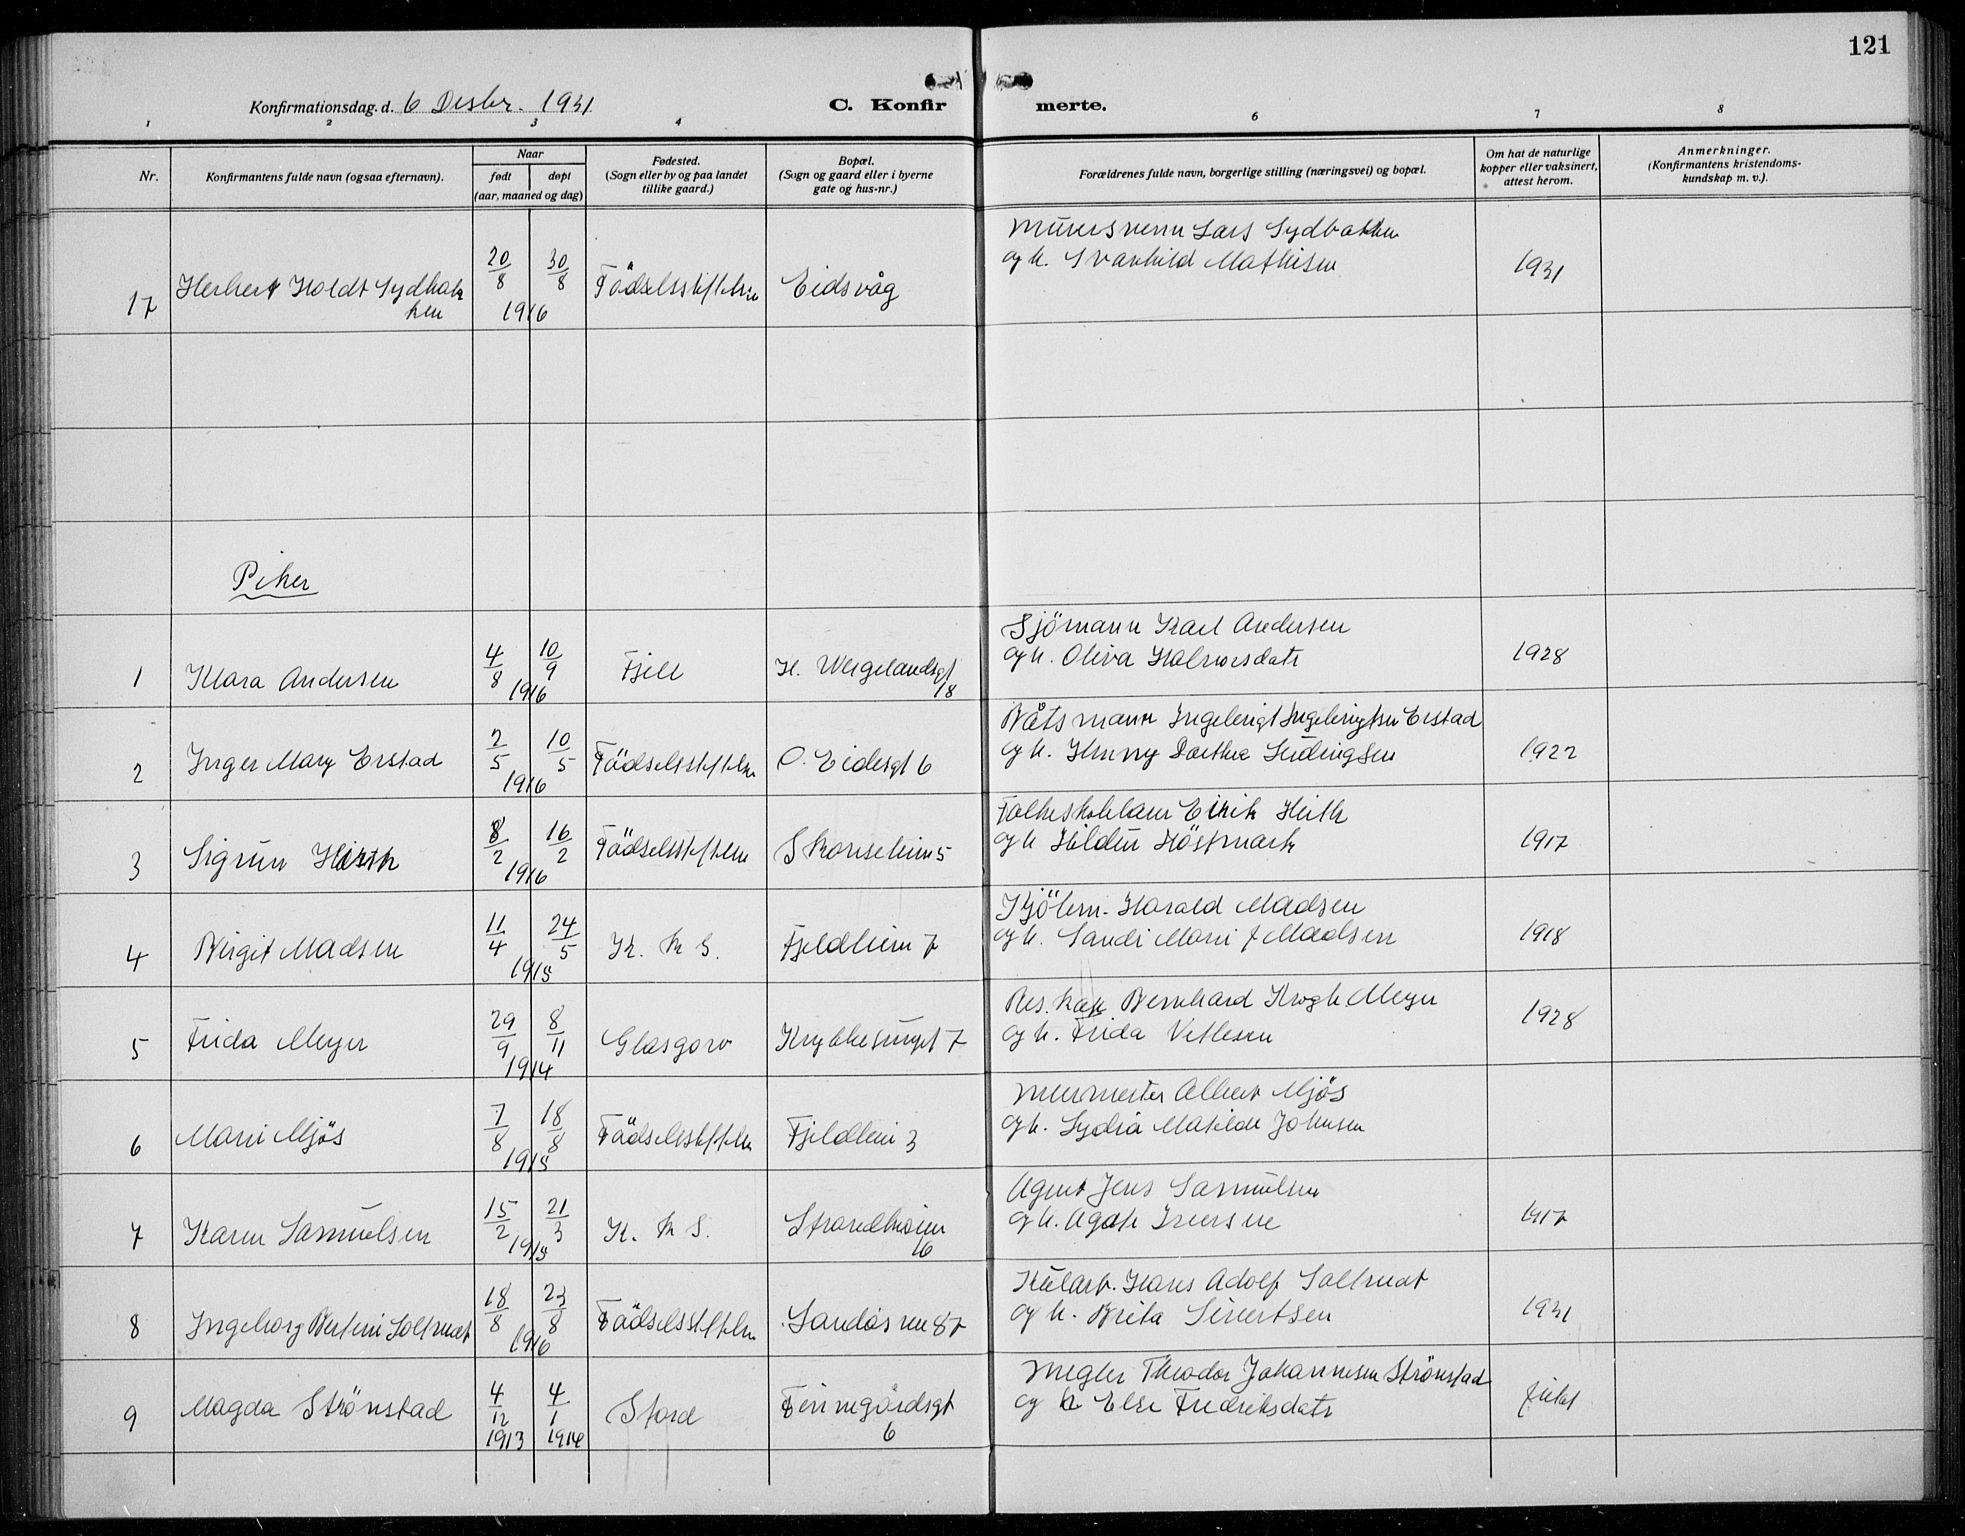 121
Konfirmationsdag. d. 6 Desbr. 1931
C. Konfir merte.
1 2 3 4 5 6 7 8
Nr.
Konfirmantens fulde navn (ogsaa efternavn).
Naar
født døpt
(aar, maaned og dag)
Fødested.
(Sogn eller by og paa landet
tillike gaard.)
Bopæl.
(Sogn og gaard eller i byerne
gate og hus-nr.)
Forældrenes fulde navn, borgerlige stilling (næringsvei) og bopæl.
Om hat de naturlige
kopper eller vaksinert,
attest herom.
Anmerkninger.
(Konfirmantens kristendoms-
kundskap m. v.).
17 Herbert Holdt Sydbak
ken
20/8 30/8
1916
Födselsstiftelsen Eidsvåg
Murersvenn Lars Sydbakken
og h. Svanhild Mathisen
1931
Piker
1 Klara Andersen
4/8 10/9
1916
Fjell H. Wergelandsgt
18
Sjömann Karl Andersen
og h. Oliva Halvorsdatr
1928
2 Inger Mary Erstad
2/5 10/5
1916
Födselsstiftelsen O. Eidesgt 6
Båtsmann Ingebrigt Ingebrigtsen Erstad
og h. Henny Dorthea
1922
3 Sigrun
8/2 16/2
1916
Födselsstiftelsen Skanseheim 5
Eirik
og h. Hildur Höstmark
1917
4 Birgit Madsen
11/4 24/5
1915
K. k S. Fjeldheim 7
Kjöbm. Harald Madsen
og h. Marie f Madsen
1918
5 Frida Meyer
29/9 8/11
1914
Glasgow 7
Res. kap Bernhard Krogh Meyer
og h. Frida Vetlesen
1928
6 Marie Mjös
7/8 18/8
1915
Födselsstiftelsen Fjeldheim 3
Murmester Albert Mjös
og h. Lydia Matilde Johnsen
7 Karen Samuelsen
15/2 21/3
1915
K. k S. Strandheim
16
Agent Jens Samuelsen
og h. Agate Iversen
1917
8 Ingeborg Bertine Soltvedt
18/8 23/8
1916
Födselsstiftelsen Sandåsvn 87
Kularb. Hans Adolf Soltvedt
og h. Brita Sivertsen
1931
9 Magda Strönstad
4/12 4/1
1913 1914
Stord Finnegårdsgt
6
Megler Theodor Johannesen Strönstad
og h Else Fredriksdatr